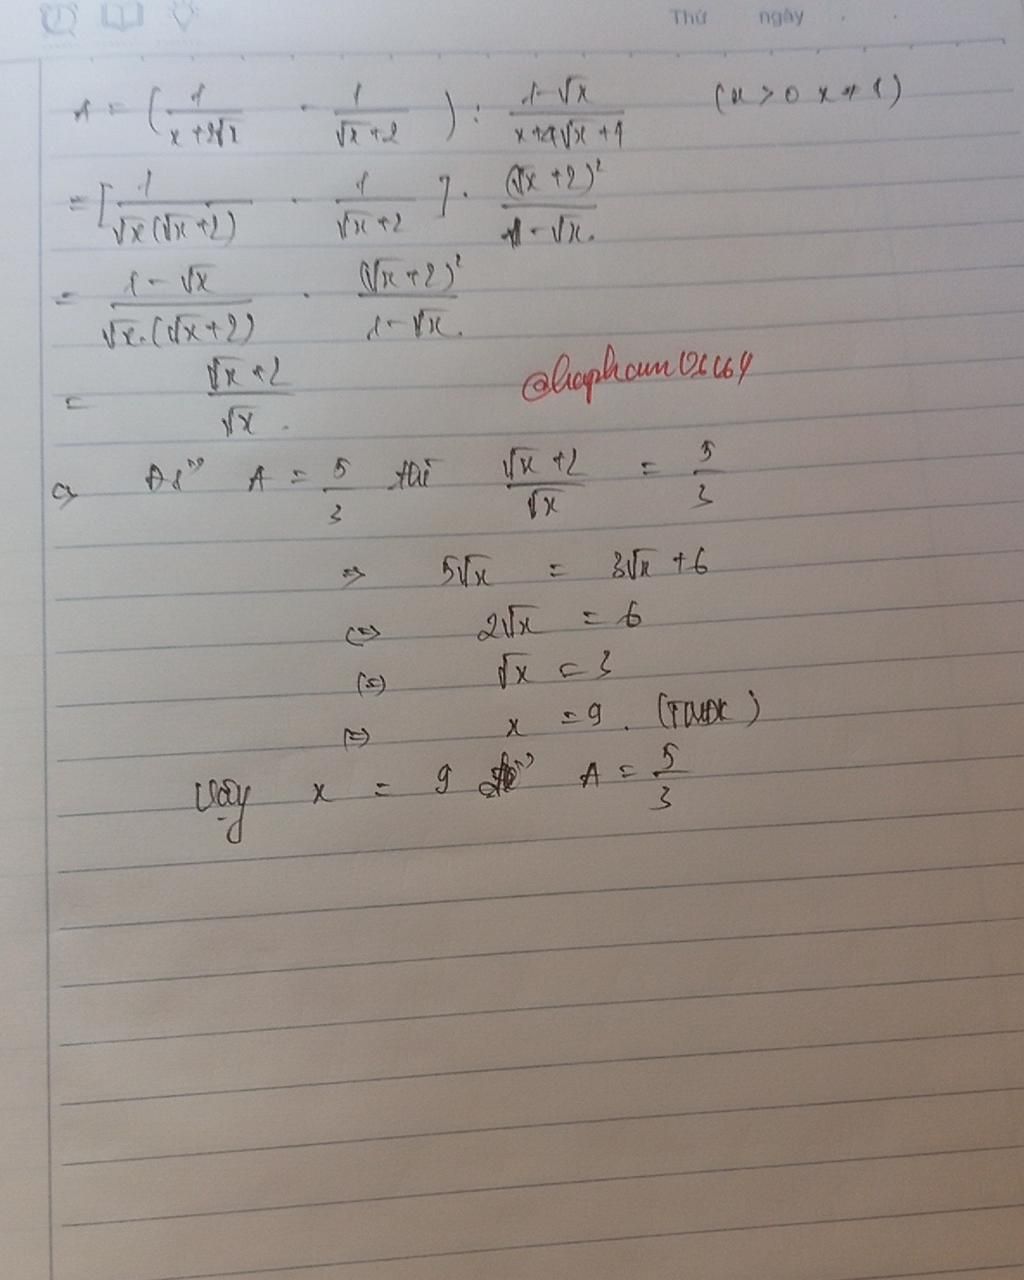 Thứ ngày . .
A = (1/(x+2√x) - 1/(√x+2)) : (1-√x)/(x+4√x+4) (x > 0 x ≠ 1)
= [1/(√x(√x+2)) - 1/(√x+2)] . (√x+2)²/(1-√x.)
= (1-√x)/(√x.(√x+2)) . (√x+2)²/(1-√x.)
= (√x+2)/(√x.)
A = 5/3 thì (√x+2)/√x = 5/3
=> 5√x = 3√x + 6
<=> 2√x = 6
(=) √x = 3
x = 9 . (TMĐK)
Vậy x = 9 A = 5/3